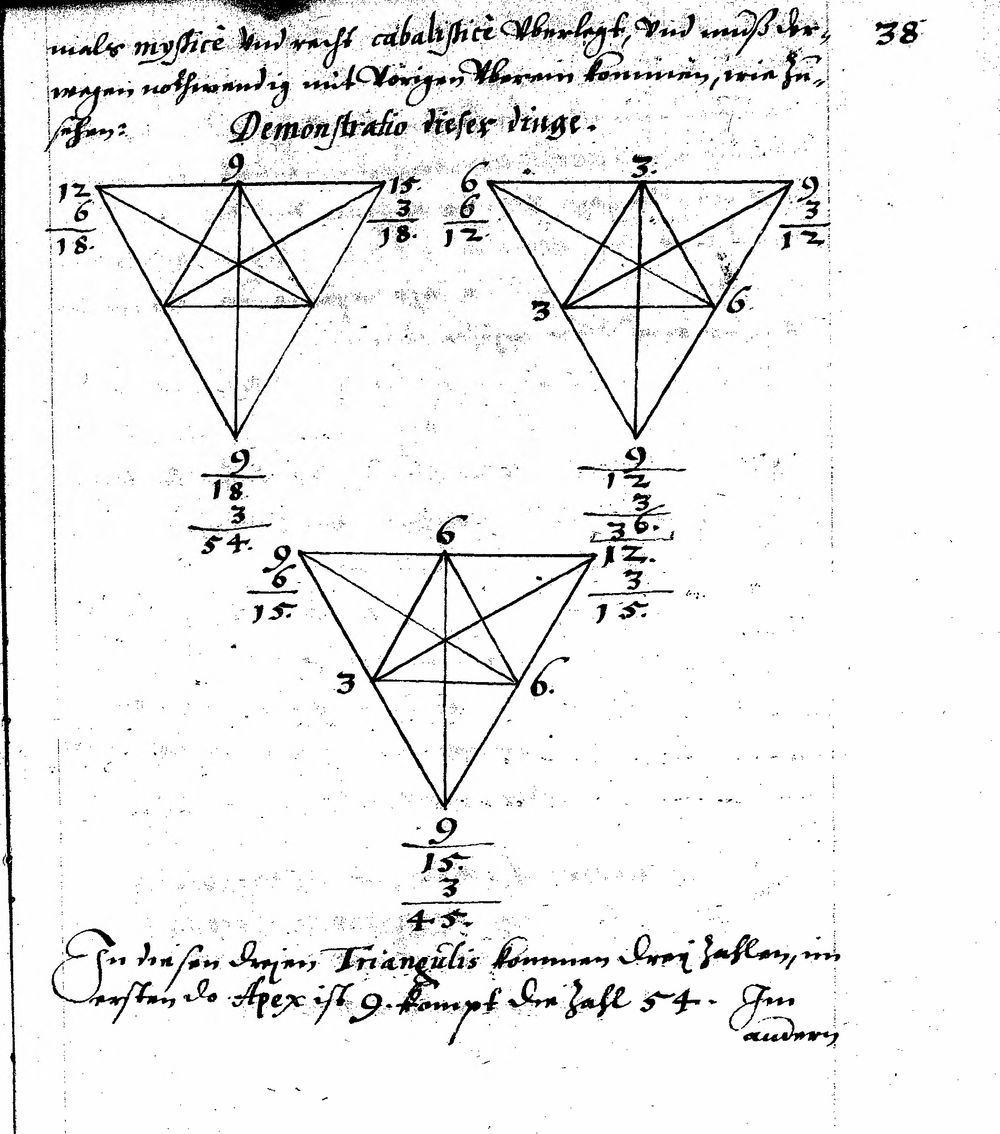 mals mysticè Vnd recht cabalisticè Vberlegt, Vnd muß der-
wegen nothwendig mit Vorigen Vberein kommen, wie zu-
sehen:
Demonstratio dieser dinge.
38
9
12 15.
6 3
18. 18.
9
18
3
54.
3.
6 9
6 3
12. 12
3 6
9
12
3
36.
6
9 12.
6 3
15. 15.
3 6.
9
15.
3
45.
In diesen dreyen Triangulis kommen drey zahlen, im
ersten do Apex ist 9. kompt die zahl 54. Im
andern